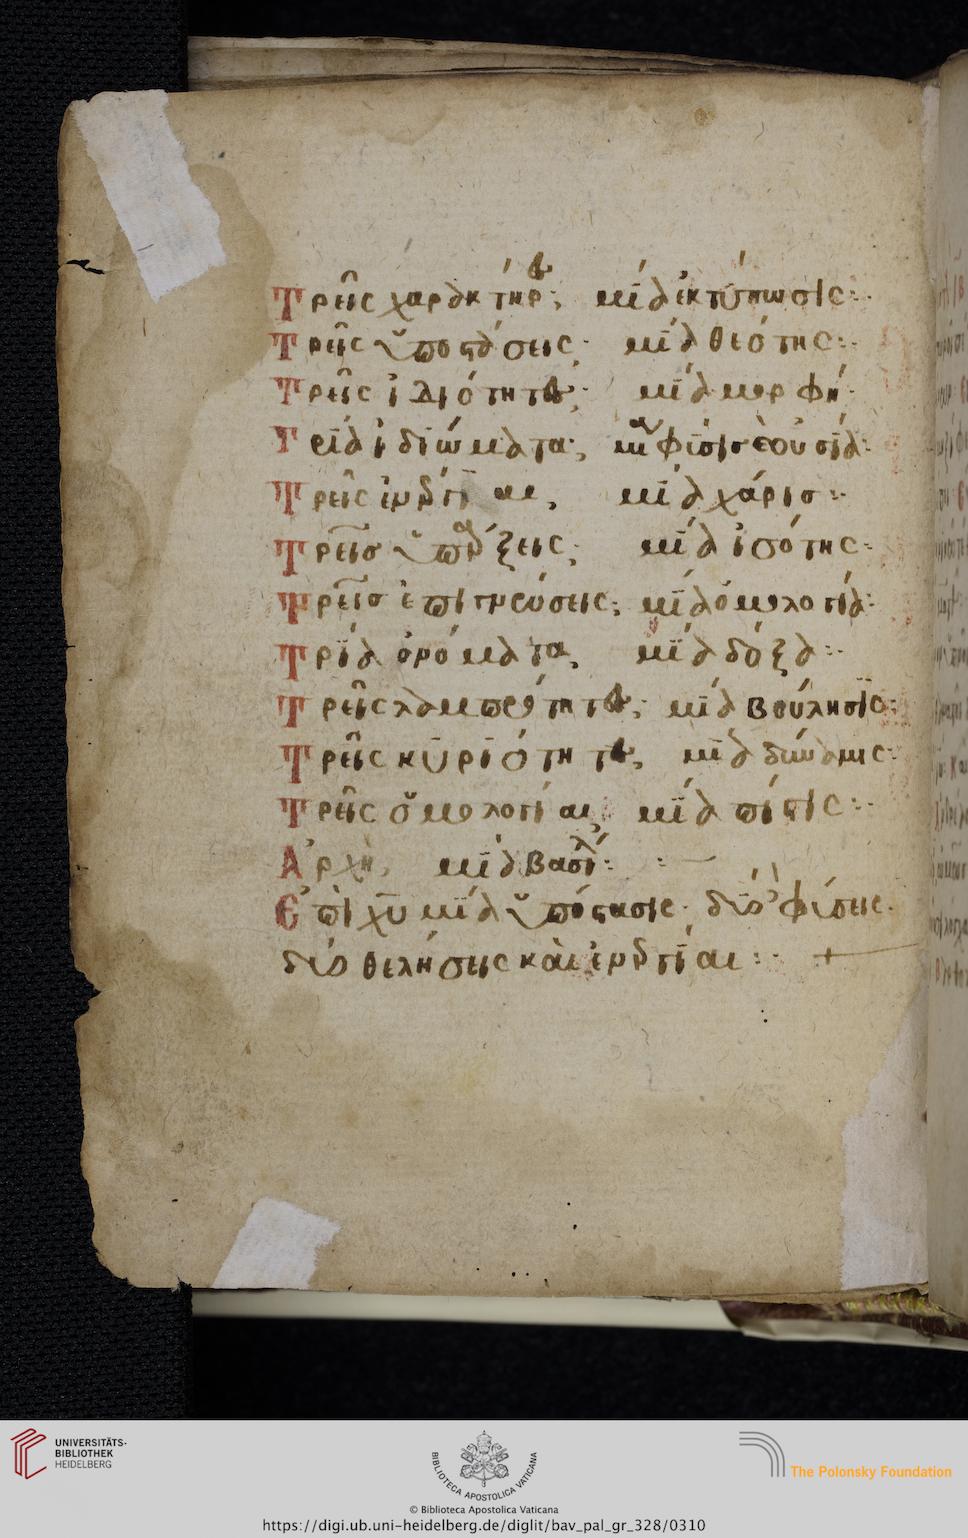 Τρεῖς χαρακτήρες, μία ἐκτύπωσις:
Τρεῖς ὑποστάσεις· μία θεότης:
Τρεῖς ἰδιότητες, μία μορφή·
Τρία ἰδιώματα, μία φύσις οὐσία:
Τρεῖς μία χάρισ:
Τρεῖσ ὑπάρξεις, μία ἰσότης:
Τρεῖσ μία ὁμολογία:
Τρία ὀνόματα, μία δόξα:
Τρεῖς λαμπρότητες, μία βούλησις:
Τρεῖς κυριότητες, μία δύναμις:
Τρεῖς ὁμολογίαι, μία πίστις:
Ἀρχὴ, μία
Ἐπὶ χυ μία ὑπόστασις· δύο φύσεις·
δύο θελήσεις καὶ
UNIVERSITÄTS-
BIBLIOTHEK
HEIDELBERG
BIBLIOTECA APOSTOLICA VATICANA
The Polonsky Foundation
© Biblioteca Apostolica Vaticana
https://digi.ub.uni-heidelberg.de/diglit/bav_pal_gr_328/0310